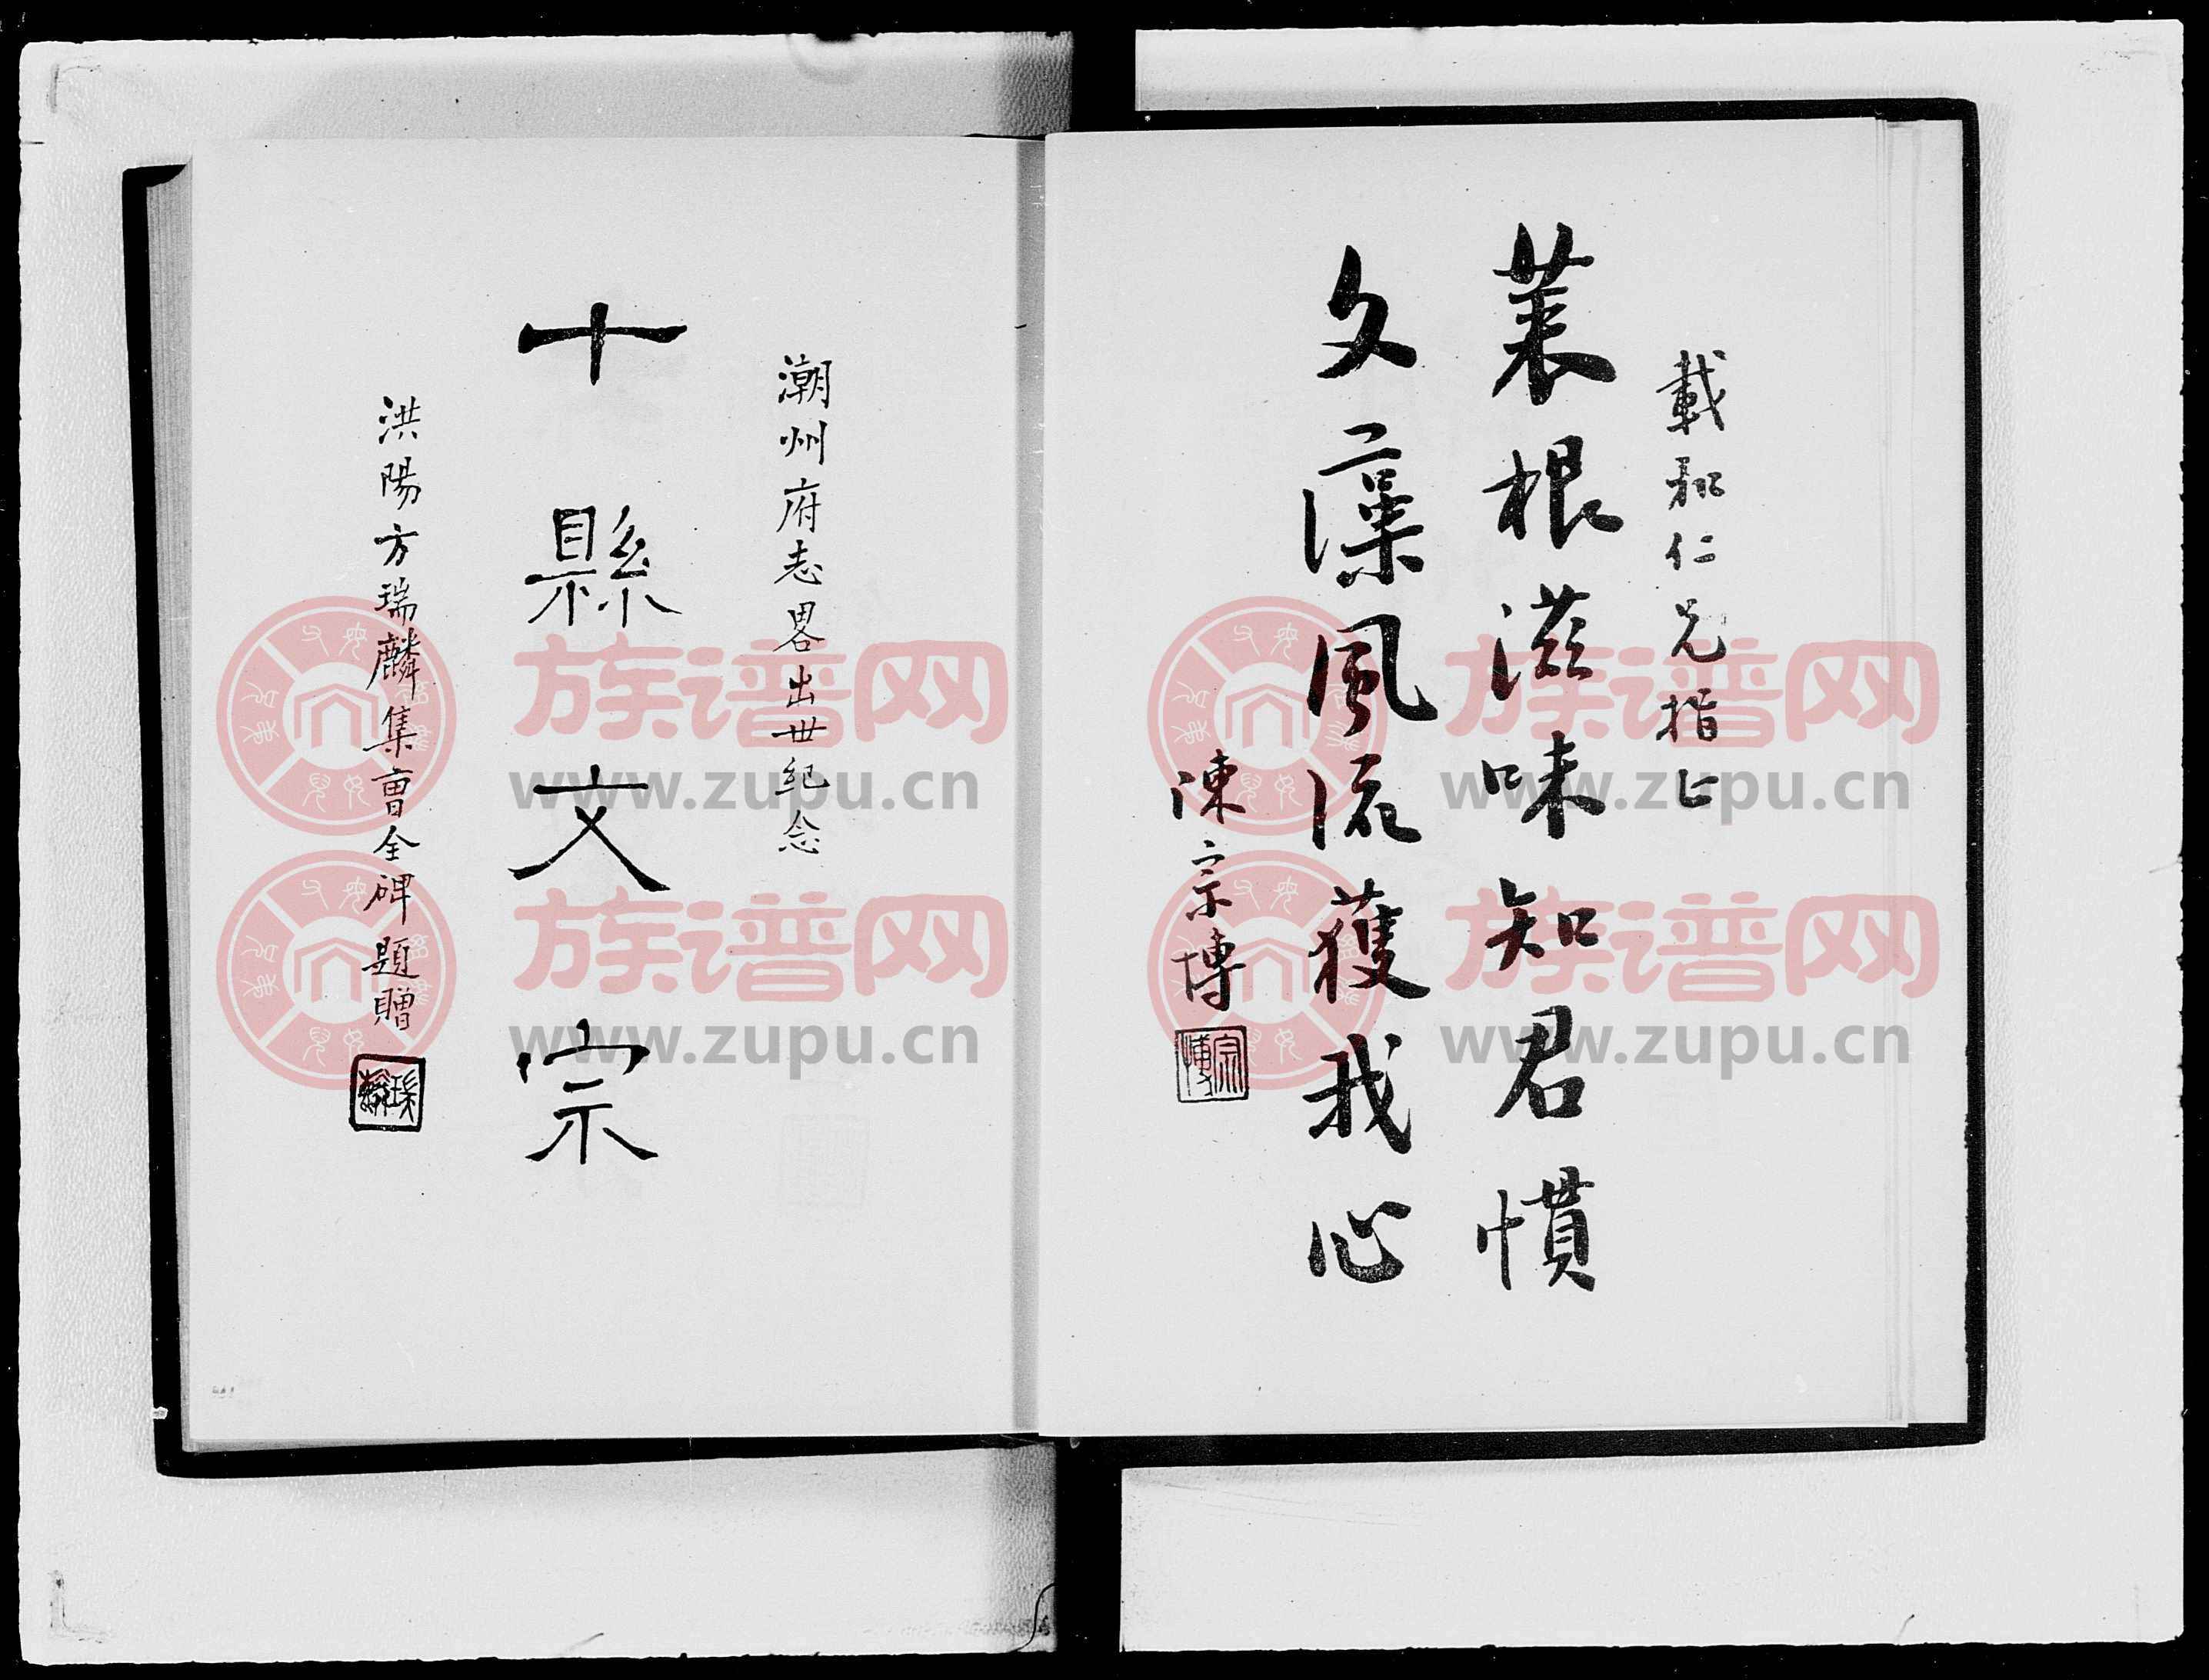 載和仁兄指正
菜根滋味知君慣
文藻風流獲我心
陳宗博
宗博
潮州府志畧出世紀念
十縣文宗
洪陽方瑞麟集曹全碑題贈
族谱网
www.zupu.cn
族谱网
www.zupu.cn
族谱网
www.zupu.cn
族谱网
www.zupu.cn